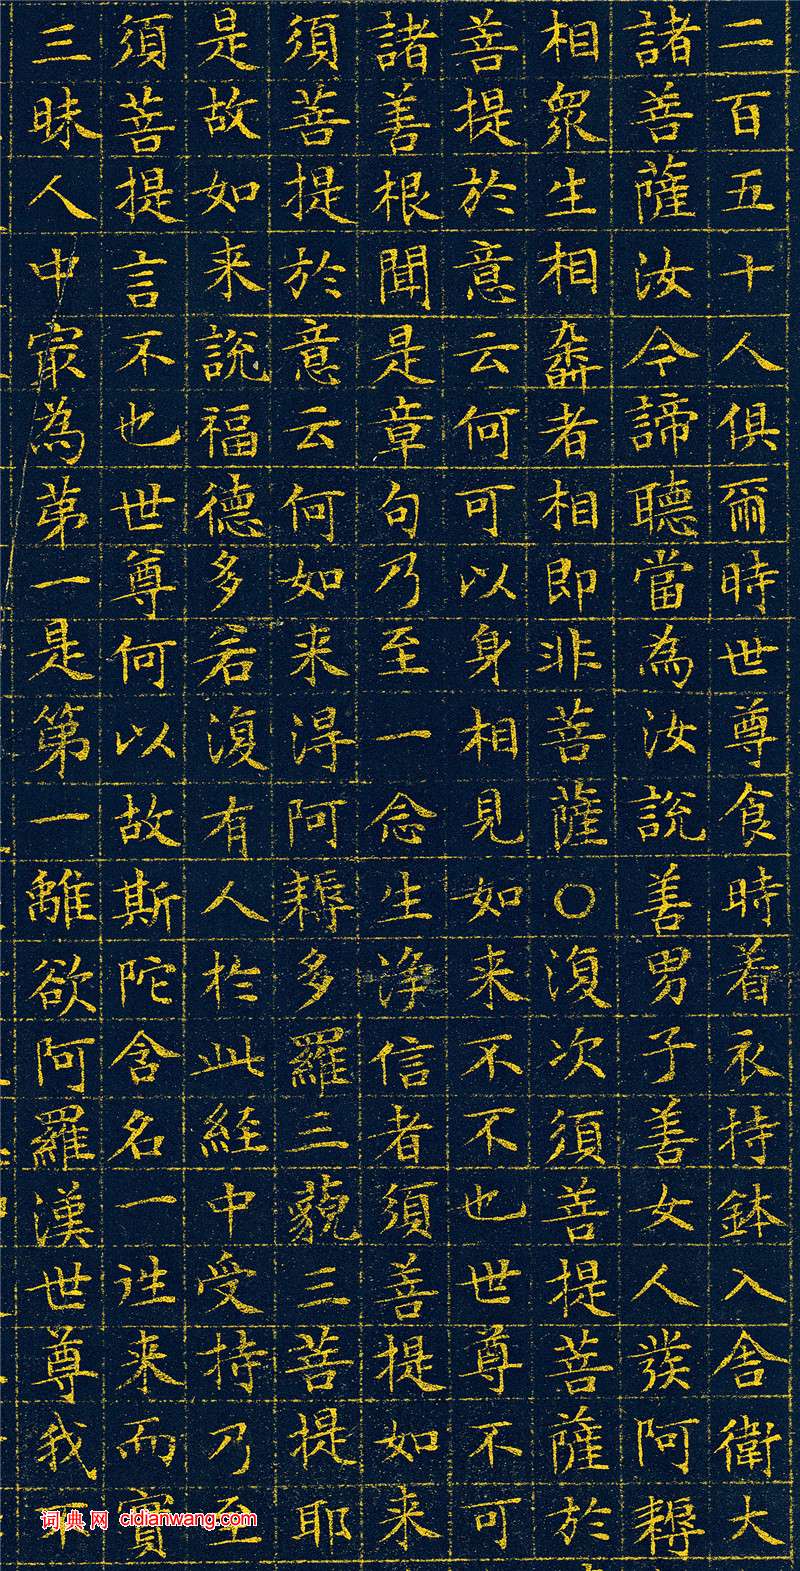 二百五十人俱爾時世尊食時着衣持鉢入舎衛大
諸菩薩汝今諦聽當為汝說善男子善女人發阿耨
相衆生相壽者相即非菩薩〇復次須菩提菩薩於
菩提於意云何可以身相見如来不不也世尊不可
諸善根聞是章句乃至一念生净信者須菩提如来
須菩提於意云何如来淂阿耨多羅三藐三菩提耶
是故如来說福德多若復有人於此經中受持乃至
須菩提言不也世尊何以故斯陀含名一往来而實
三昧人中冣為苐一是第一離欲阿羅漢世尊我不
词典网 cidianwang.com